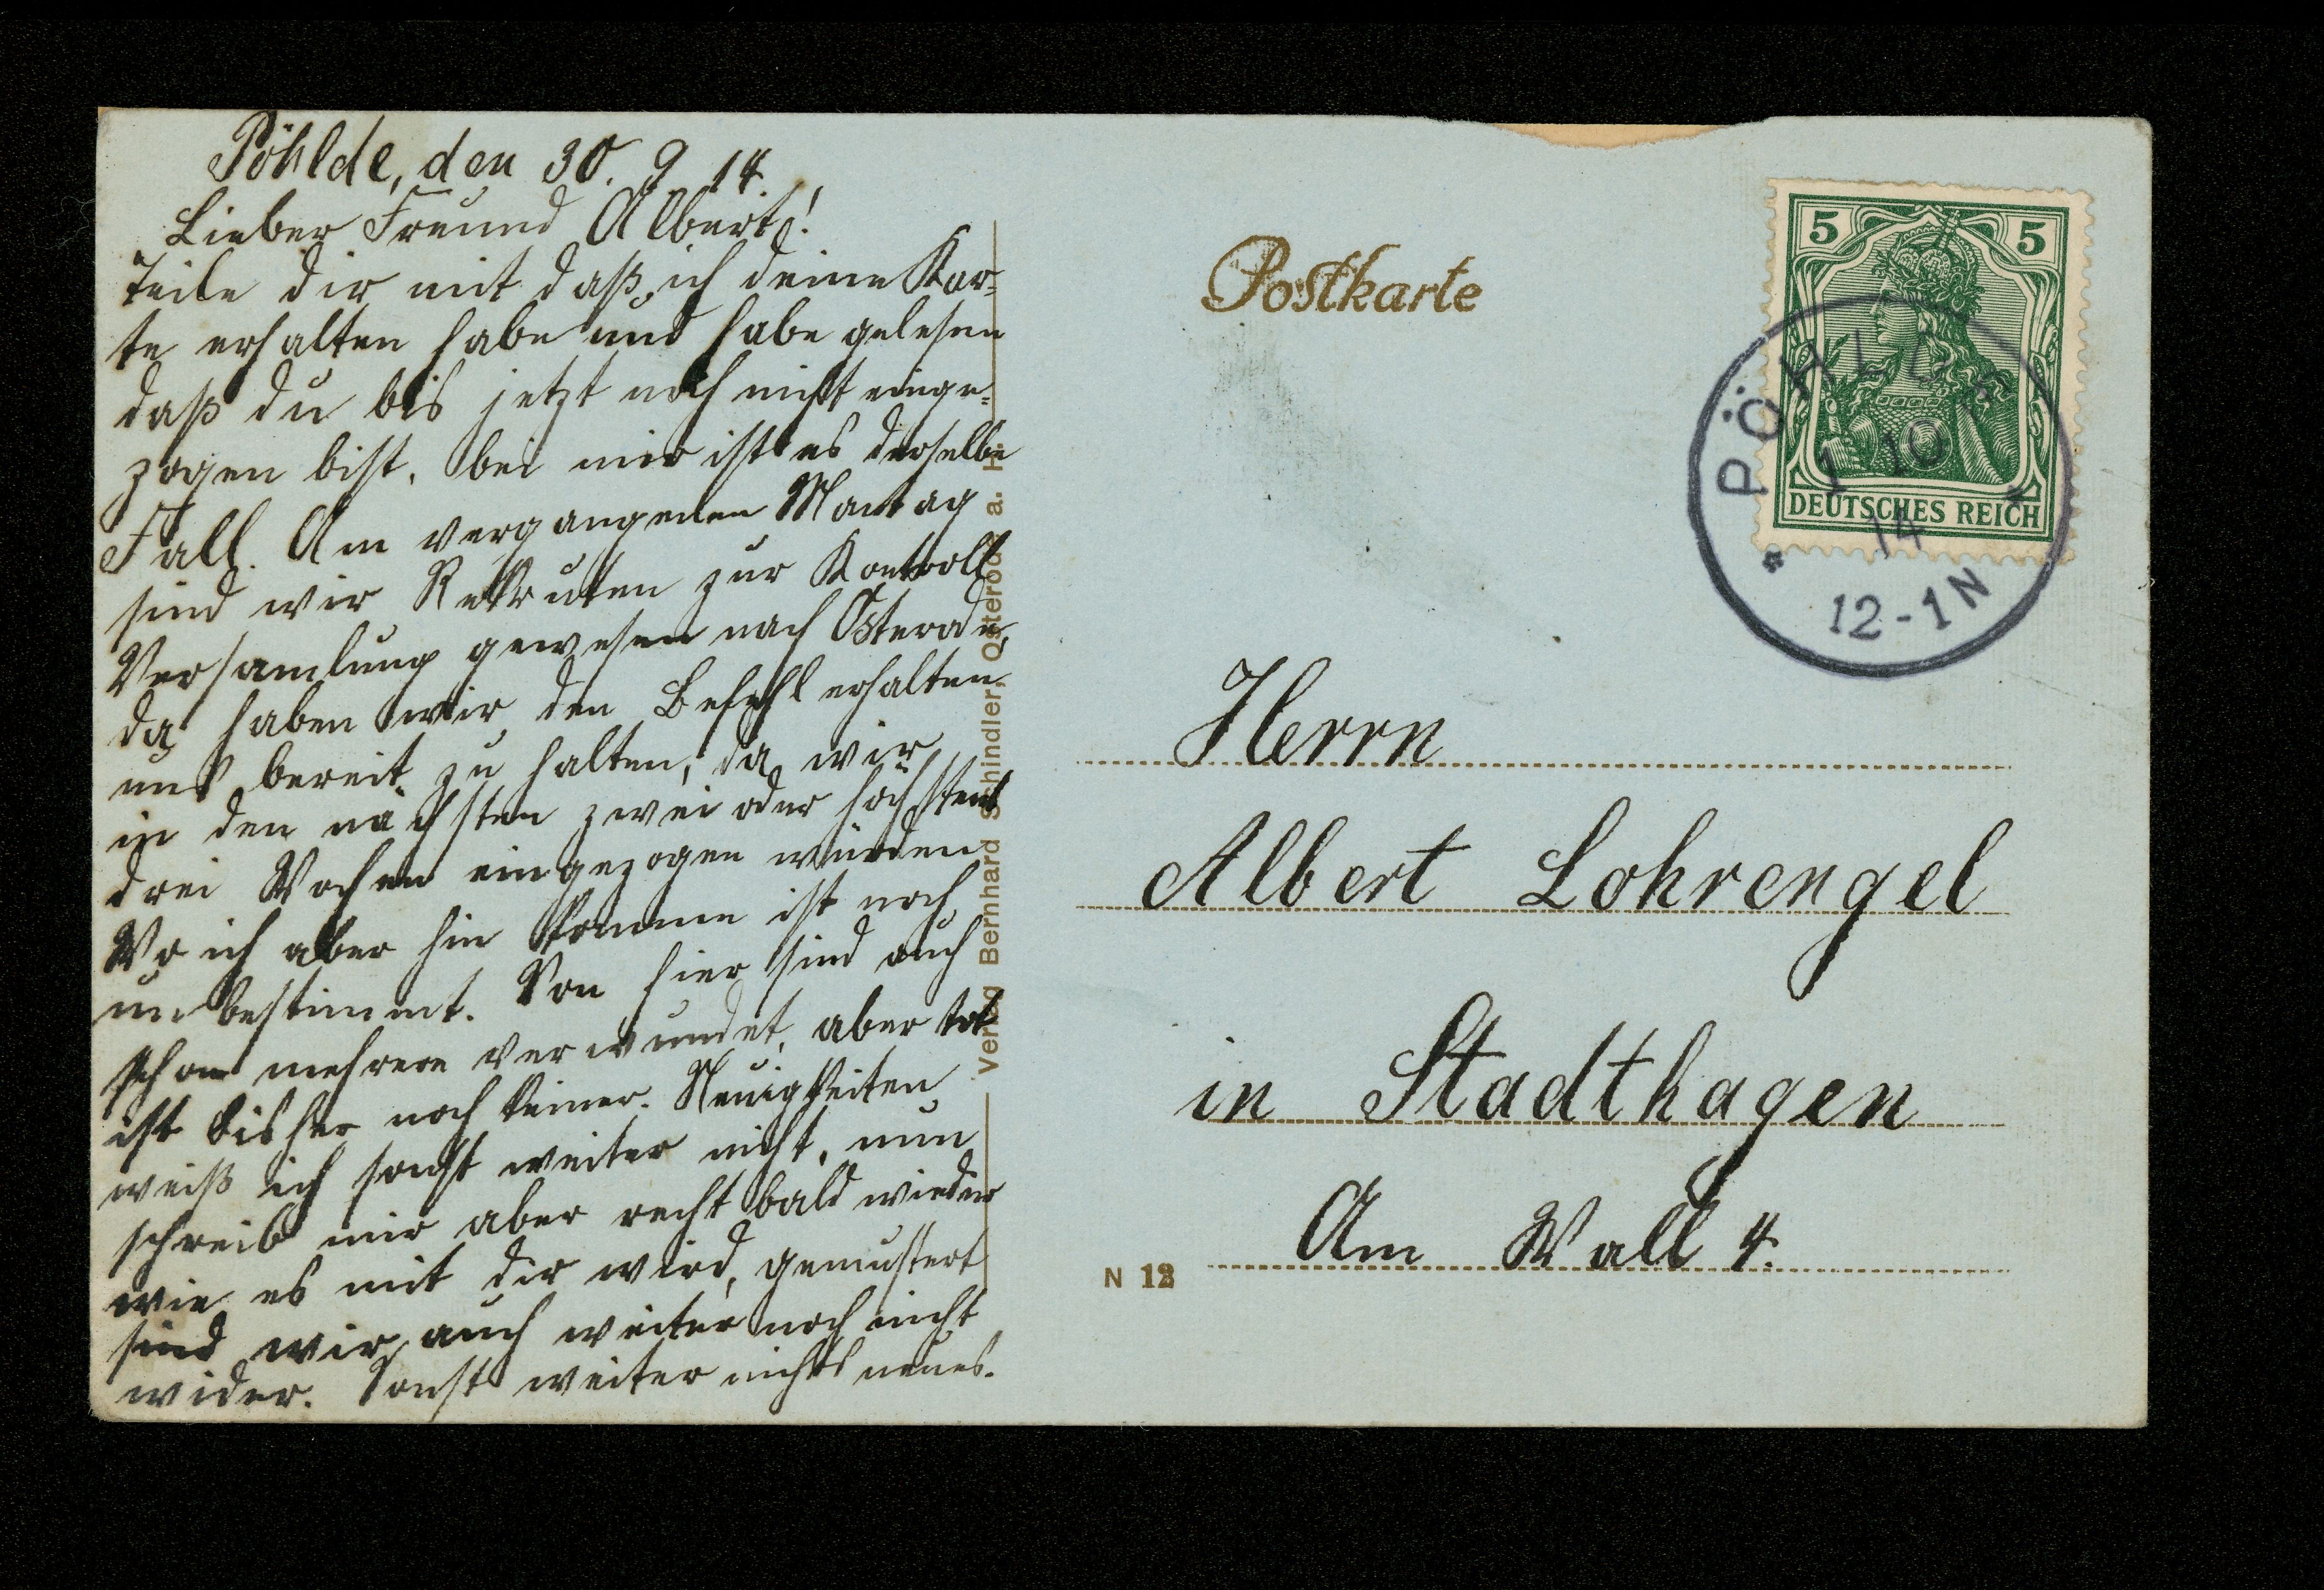 Pöhlde, den 30. 9. 14.
Lieber Freund Albert!
Teile dir mit daß ich deine Kar=
te erhalten habe und habe gelesen
daß du bis jetzt noch nicht einge=
zogen bist. bei mir ist es derselbe
Fall. Am vergangenen Montag
sind wir Rekruten zur Kontroll
Versamlung gewesen nach Osterode,
da haben wir den Befehl erhalten
uns bereit zu halten, da wir
in den nächsten zwei oder höchstens
drei Wochen eingezogen würden
Wo ich aber hin komme ist noch
unbestimmt. Von hier sind auch
schon mehrere verwundet, aber tot
ist bisher noch keiner. Neuigkeiten
weiß ich sonst weiter nicht, nun
schreib mir aber recht bald wieder
wie es mit dir wird, gemustert
sind wir auch weiter noch nicht
wider. Sonst weiter nichts neues.
Verlag Bernhard Schindler, Osterode a. H.
Postkarte
5 5
DEUTSCHES REICH
PÖHLDE
1 10
14
12-1 N
Herrn
Albert Lohrengel
in Stadthagen
Am Wall 4.
N 12